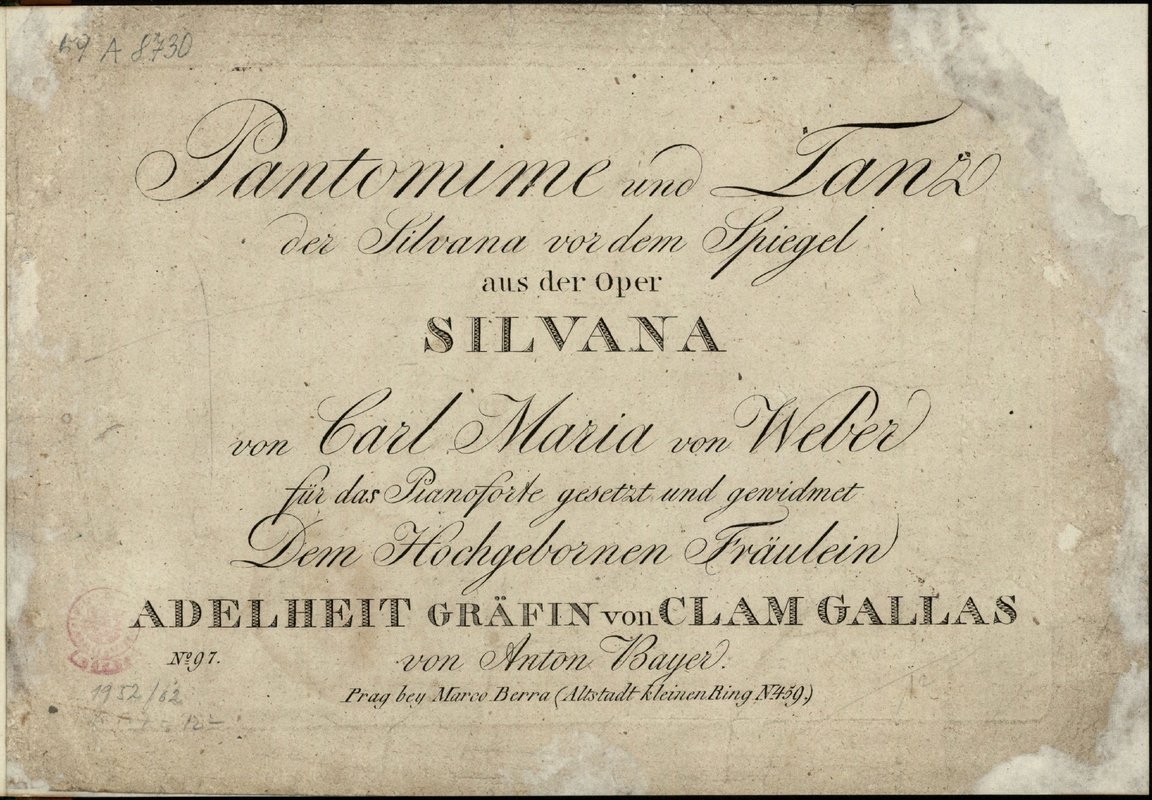 49 A 8730
Pantomime und Tanz
der Silvana vor dem Spiegel
aus der Oper
SILVANA
von Carl Maria von Weber
für das Pianoforte gesetzt und gewidmet
Dem Hochgebornen Fräulein
ADELHEIT GRÄFIN von CLAM GALLAS
No 97.
von Anton Bayer.
Prag bey Marco Berra (Altstadt kleinen Ring No 459.)
1952/62